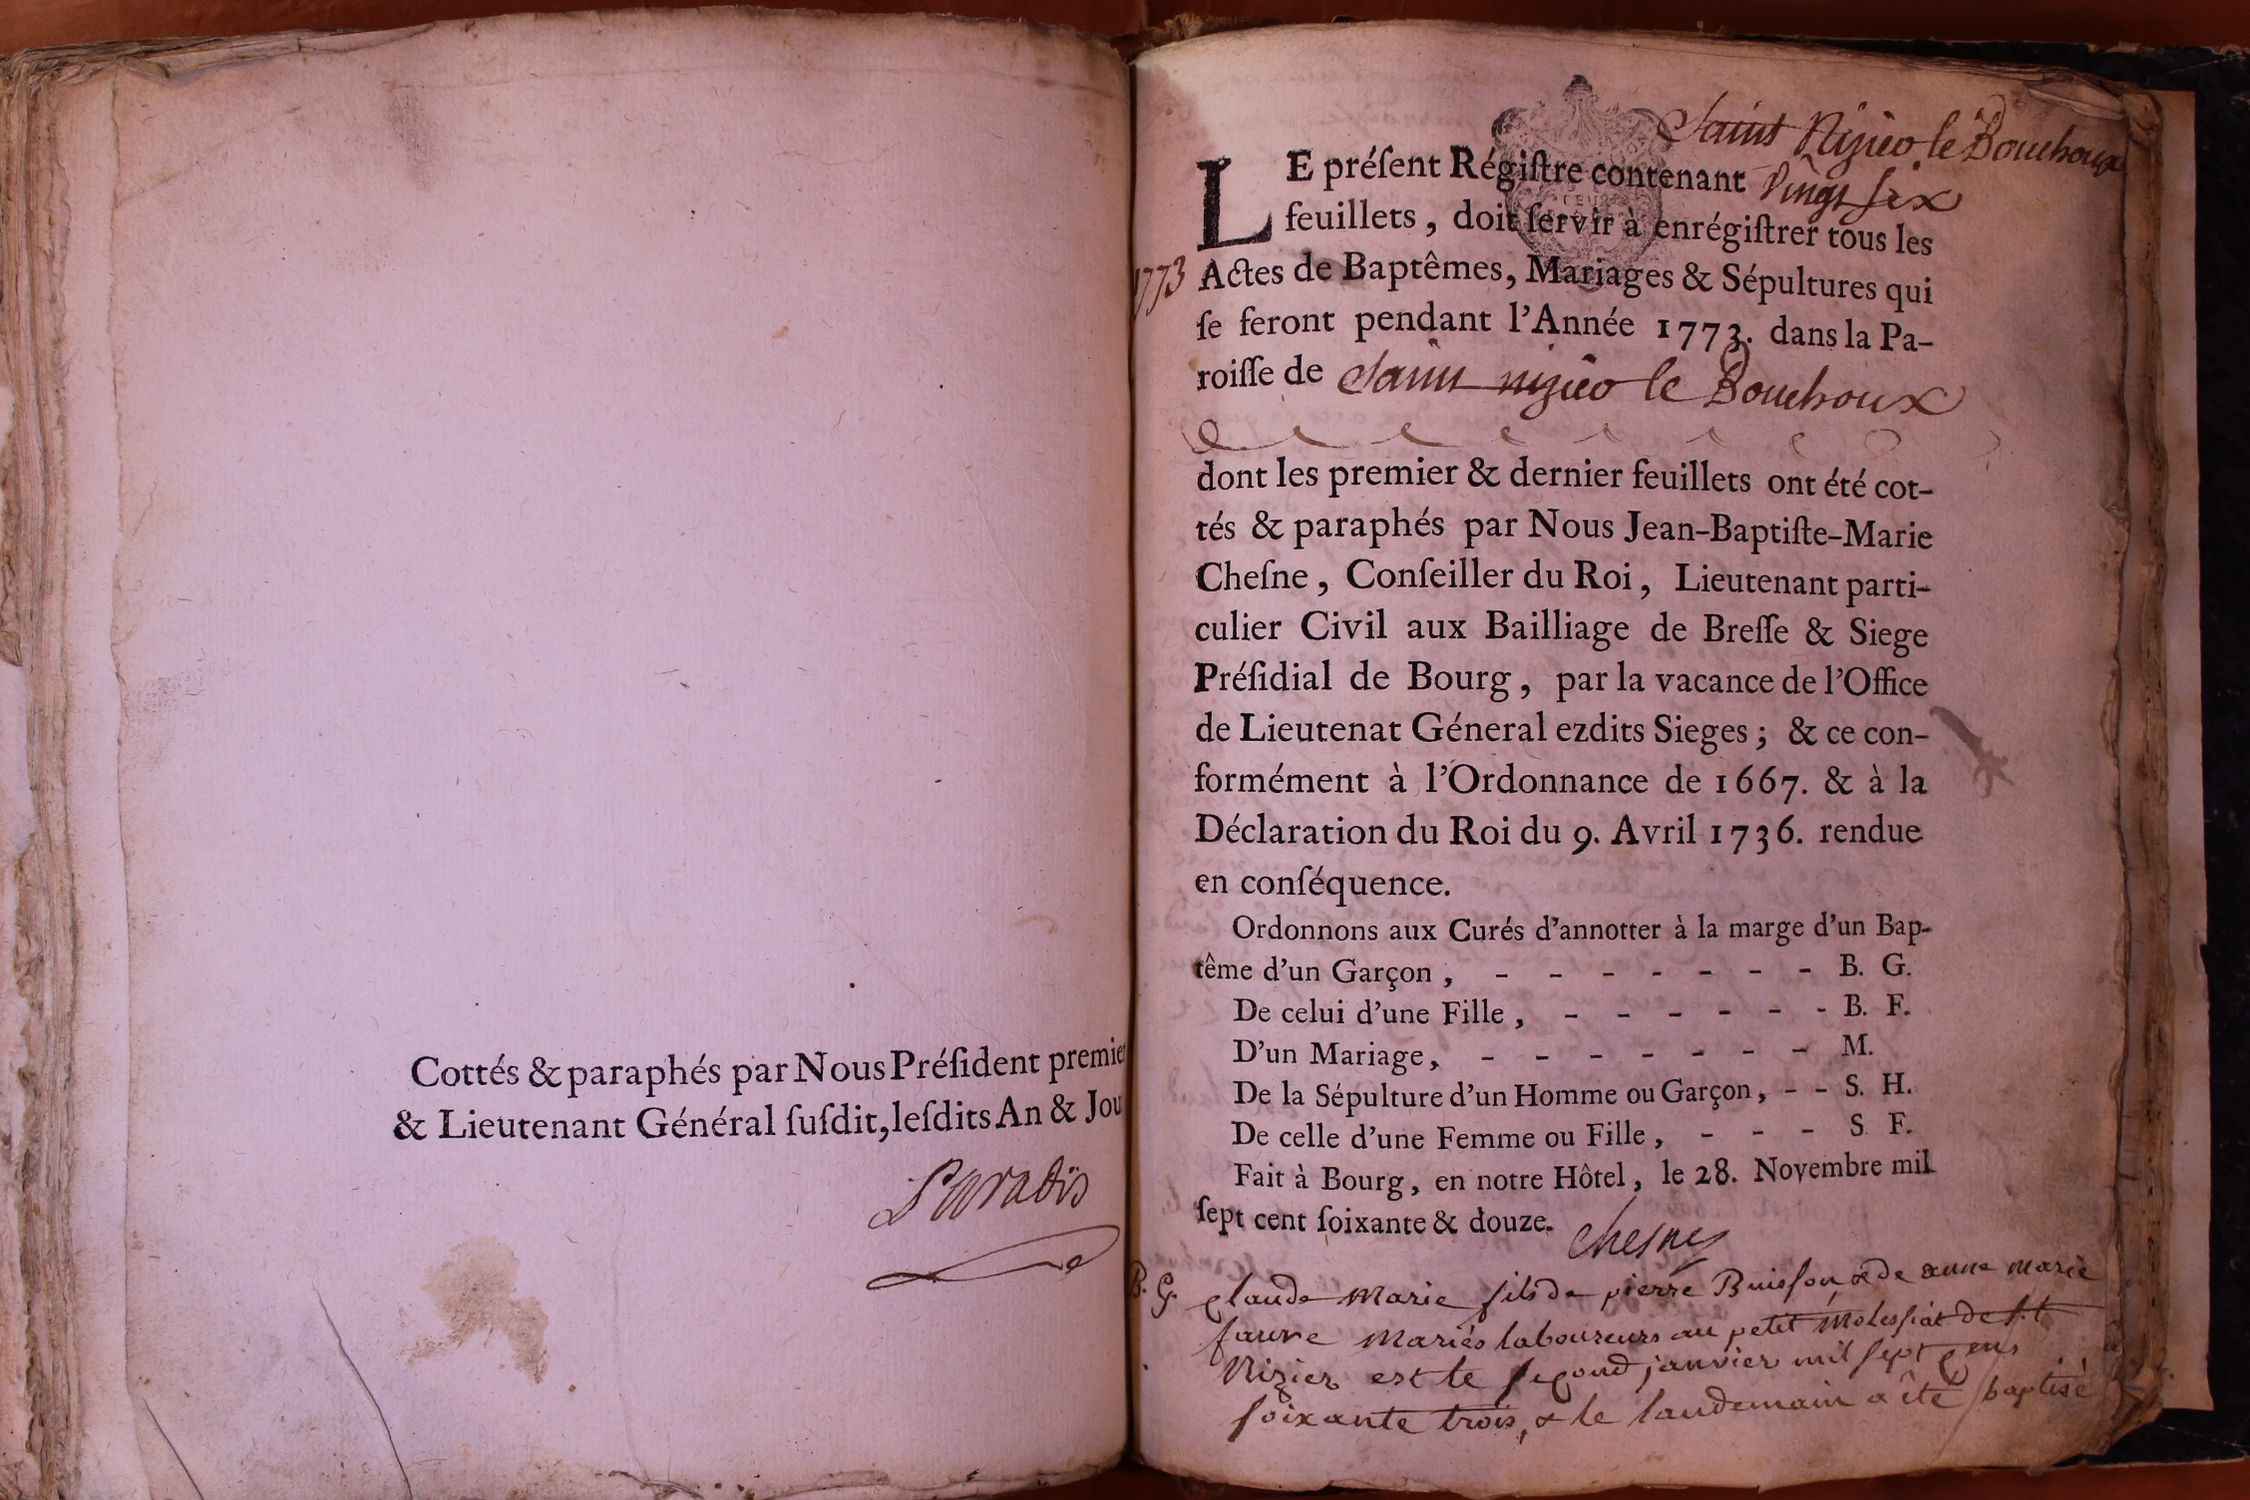 Cottés & paraphés par Nous Préſident premie
& Lieutenant Général ſuſdit, leſdits An & Jou
Paradis
Saint Nizier le Bouchoux
LE préſent Régiſtre contenant Vingt six
feuillets, doit ſervir à enrégiſtrer tous les
1773
Actes de Baptêmes, Mariages & Sépultures qui
ſe feront pendant l'Année 1773. dans la Pa-
roiſſe de Saint nizier le Bouchoux
dont les premier & dernier feuillets ont été cot-
tés & paraphés par Nous Jean-Baptiſte-Marie
Cheſne, Conſeiller du Roi, Lieutenant parti-
culier Civil aux Bailliage de Breſſe & Siege
Préſidial de Bourg, par la vacance de l'Office
de Lieutenat Géneral ezdits Sieges; & ce con-
formément à l'Ordonnance de 1667. & à la
Déclaration du Roi du 9. Avril 1736. rendue
en conſéquence.
Ordonnons aux Curés d'annotter à la marge d'un Bap-
tême d'un Garçon, - - - - - - - B. G.
De celui d'une Fille, - - - - - - B. F.
D'un Mariage, - - - - - - - M.
De la Sépulture d'un Homme ou Garçon, - - S. H.
De celle d'une Femme ou Fille, - - - S F.
Fait à Bourg, en notre Hôtel, le 28. Novembre mil
ſept cent ſoixante & douze.
Chesne
B. G. Claude Marie fils de pierre Buisson, & de anne marie
faure mariés laboureurs au petit de st
Nizier est le second janvier mil sept cens
soixante trois, & le landemain a été baptisé